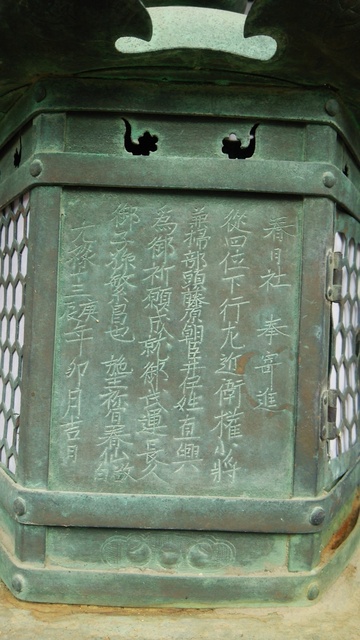 春日社 奉寄進
從四位下行左近衛權小將
兼掃部頭藤原朝臣井伊姓直興
為御祈願成就御武運長久
御子孫繁昌也 施主祢宜春 白
元禄十三庚辰年卯月吉日